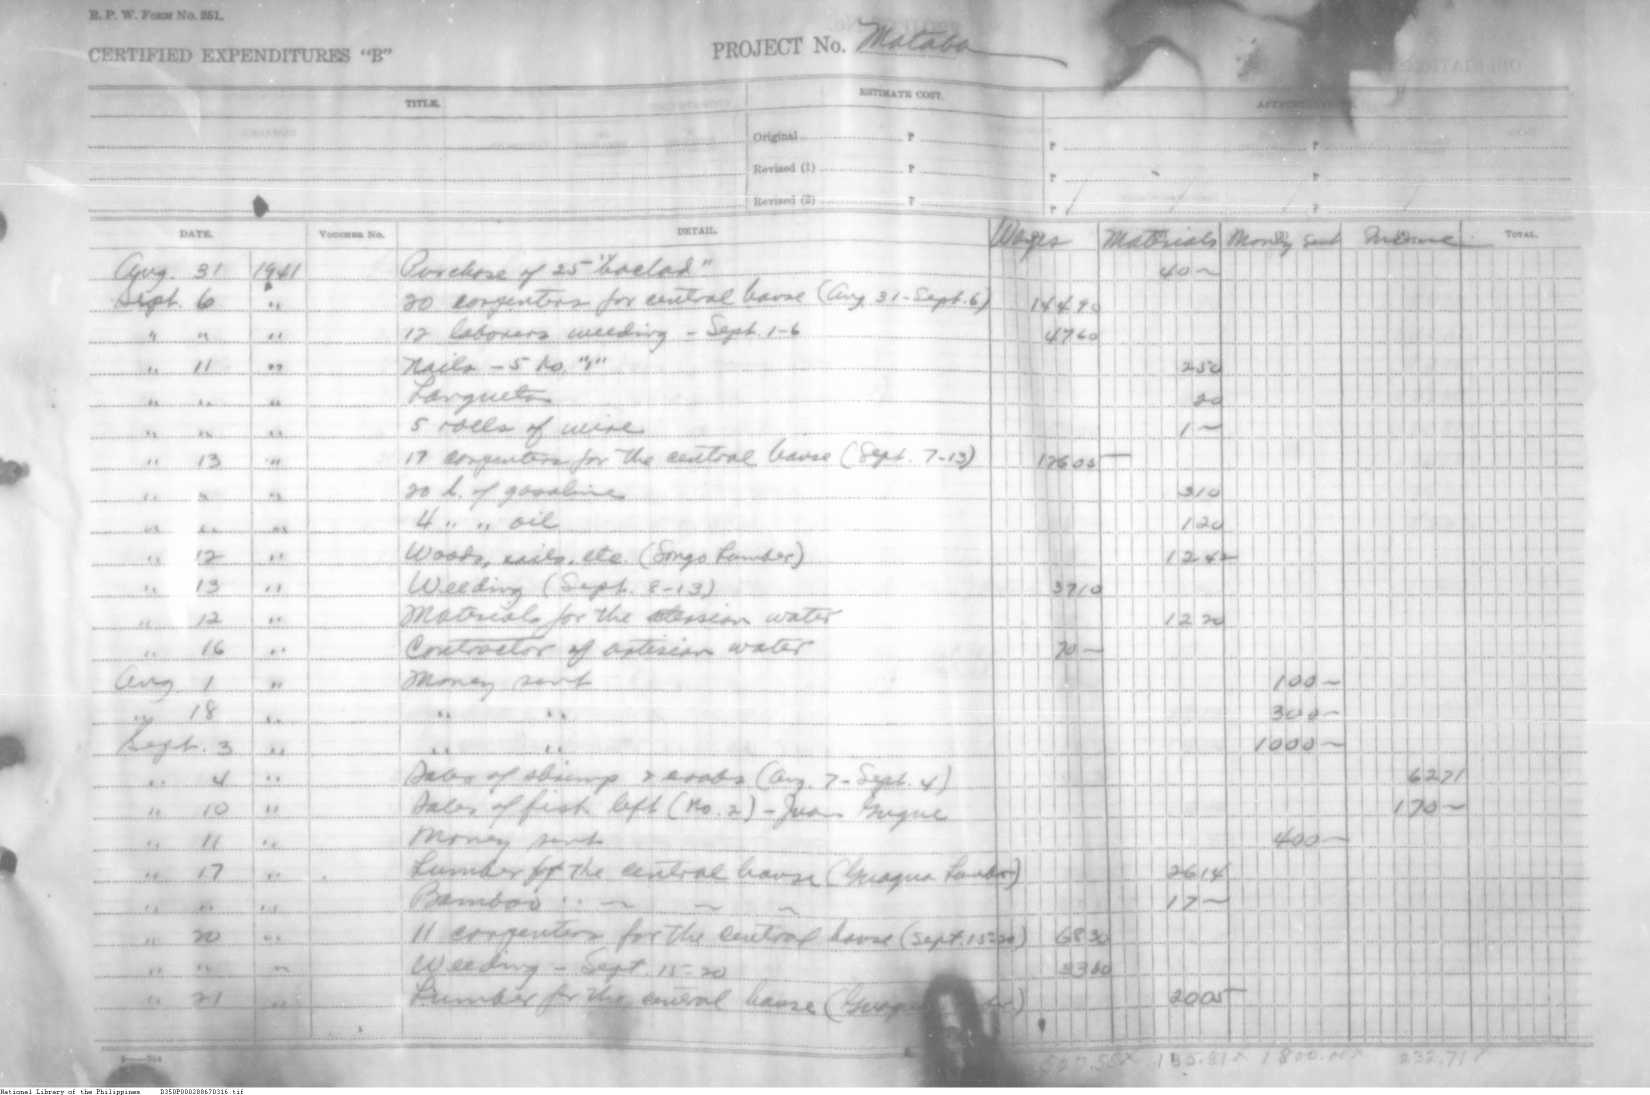 B. P. W. Form No. 251.
CERTIFIED EXPENDITURES "B"
PROJECT No. Mataba
TITLE.
ESTIMATE COST.
Original P P P
Revised (1) P P P
Revised (2) P P P
DATE. VOUCHER No. DETAIL. Wages Materials Money sent Income TOTAL.
Aug. 31 1941 Purchase of 25 "baclad" 40 –
Sept. 6 " 20 carpenters for central house (Aug. 31 - Sept. 6) 144 90
" " " 12 laborers weeding - Sept. 1-6 47 60
" 11 " Nails - 5 ko. 2 50
" " " 20
" " " 5 rolls of wire 1 –
" 13 " 17 carpenters for the central house (Sept. 7-13) 126 05
" " " 20 l. of gasoline 3 10
" " " 4 " " oil 1 20
" 12 " Woods, nails, etc. (Songo Lumber) 12 42
" 13 " Weeding (Sept. 8-13) 37 10
" 12 " Materials for the water 12 20
" 16 " Contractor of artisian water 70 –
Aug 1 " Money sent 100 –
" 18 " " " 300 –
Sept. 3 " " " 1000 –
" 4 " Sales of shrimp & crabs (Aug. 7 - Sept. 4) 62 71
" 10 " Sales of fish left (No. 2) - Juan 170 –
" 11 " Money sent 400 –
" 17 " Lumber for the central house (Guagua Lumber) 26 14
" " " Bamboo " – – – 17 –
" 20 " 11 carpenters for the central house (Sept. 15-20) 68 30
" " " Weeding - Sept. 15-20 33 60
" 21 " Lumber for the central house 20 05
527.55 1800.00 232.71
National Library of the Philippines D350P000288670316.tif